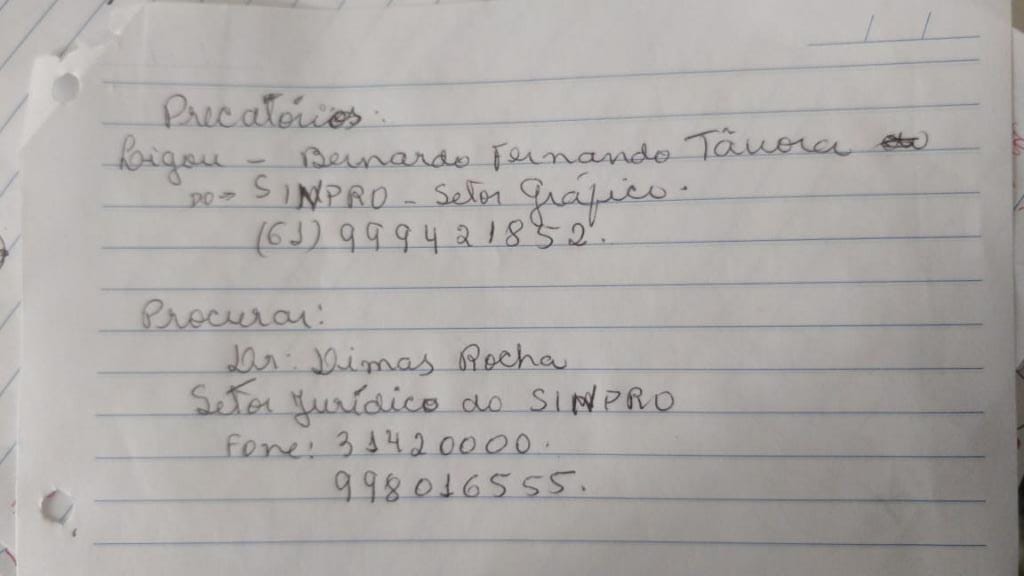 Precatórios:
Ligou - Bernardo Fernando Távora
DO → SINPRO - Setor Gráfico.
(61) 999421852.
Procurar:
Dr: Dimas Rocha
Setor Jurídico do SINPRO
Fone: 31420000.
998016555.